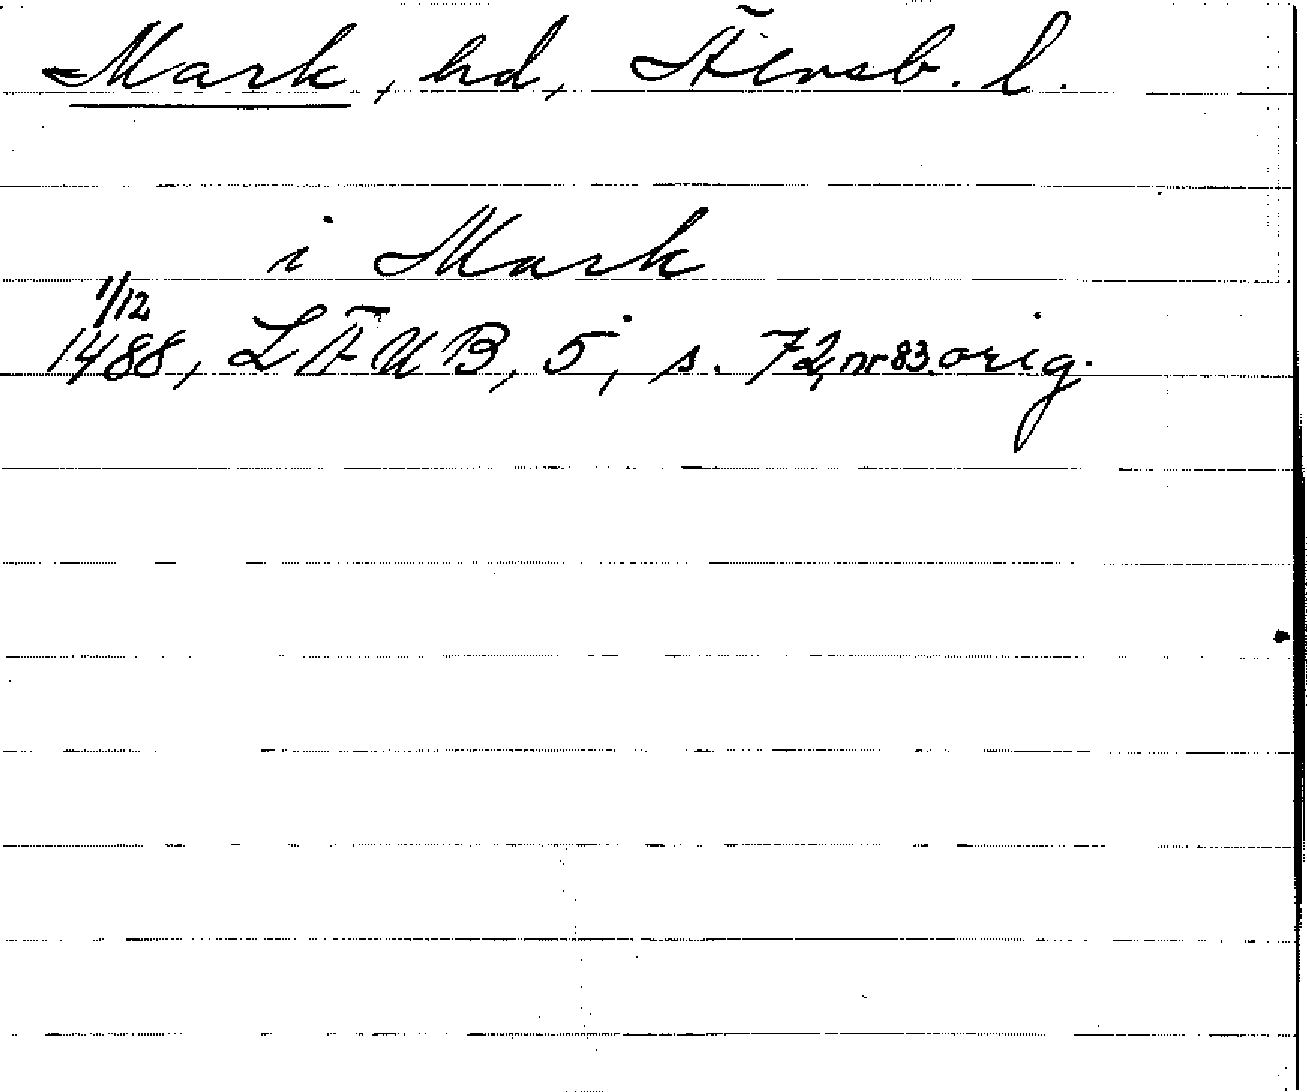 Mark, hd, Älvsb. l.
i Mark
1/12
1488, LÄUB, 5, s. 72, nr 83. orig.